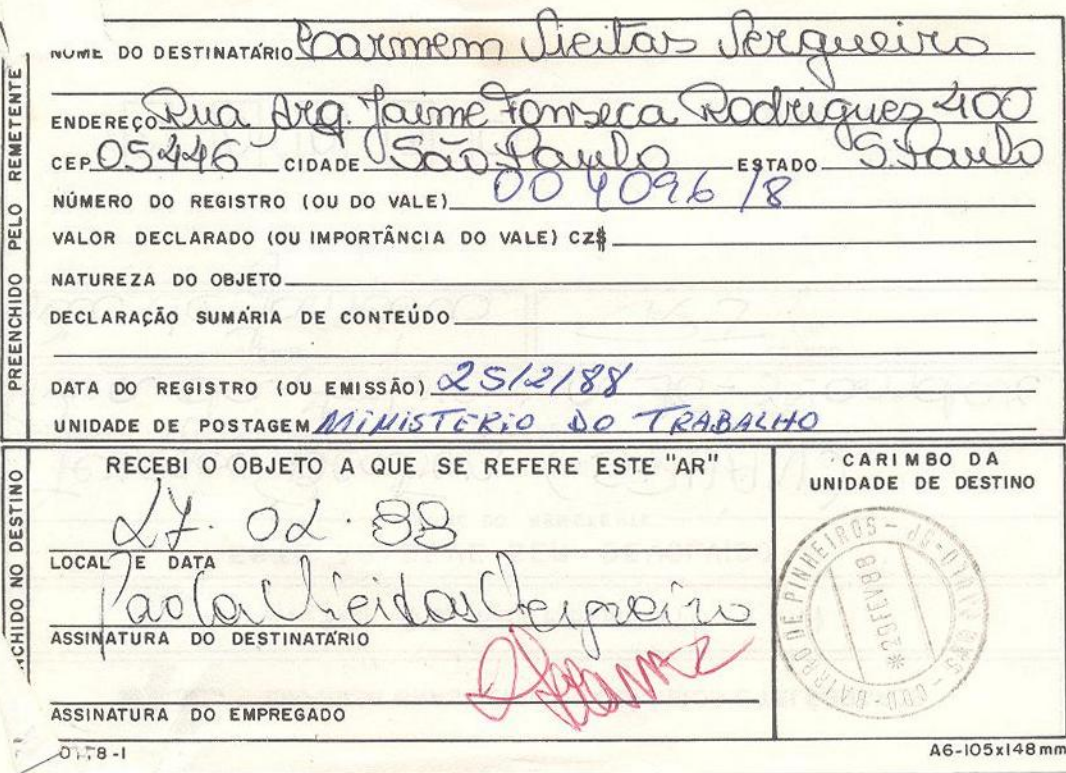 PREENCHIDO PELO REMETENTE
NOME DO DESTINATÁRIO Carmem Vieitas Vergueiro
ENDEREÇO Rua Arq. Jaime Fonseca Rodrigues 400
CEP 05446 CIDADE São Paulo ESTADO S. Paulo
NÚMERO DO REGISTRO (OU DO VALE) 004096/8
VALOR DECLARADO (OU IMPORTÂNCIA DO VALE) CZ$
NATUREZA DO OBJETO
DECLARAÇÃO SUMÁRIA DE CONTEÚDO
DATA DO REGISTRO (OU EMISSÃO) 25/2/88
UNIDADE DE POSTAGEM MINISTERIO DO TRABALHO
NCHIDO NO DESTINO
RECEBI O OBJETO A QUE SE REFERE ESTE "AR"
27.02.88
LOCAL E DATA
Paola Vieitas Vergueiro
ASSINATURA DO DESTINATÁRIO
ASSINATURA DO EMPREGADO
CARIMBO DA
UNIDADE DE DESTINO
CDD-BAIRRO DE PINHEIROS - DR/SÃO PAULO-SP
*29FEV88
0178-1
A6-105x148mm